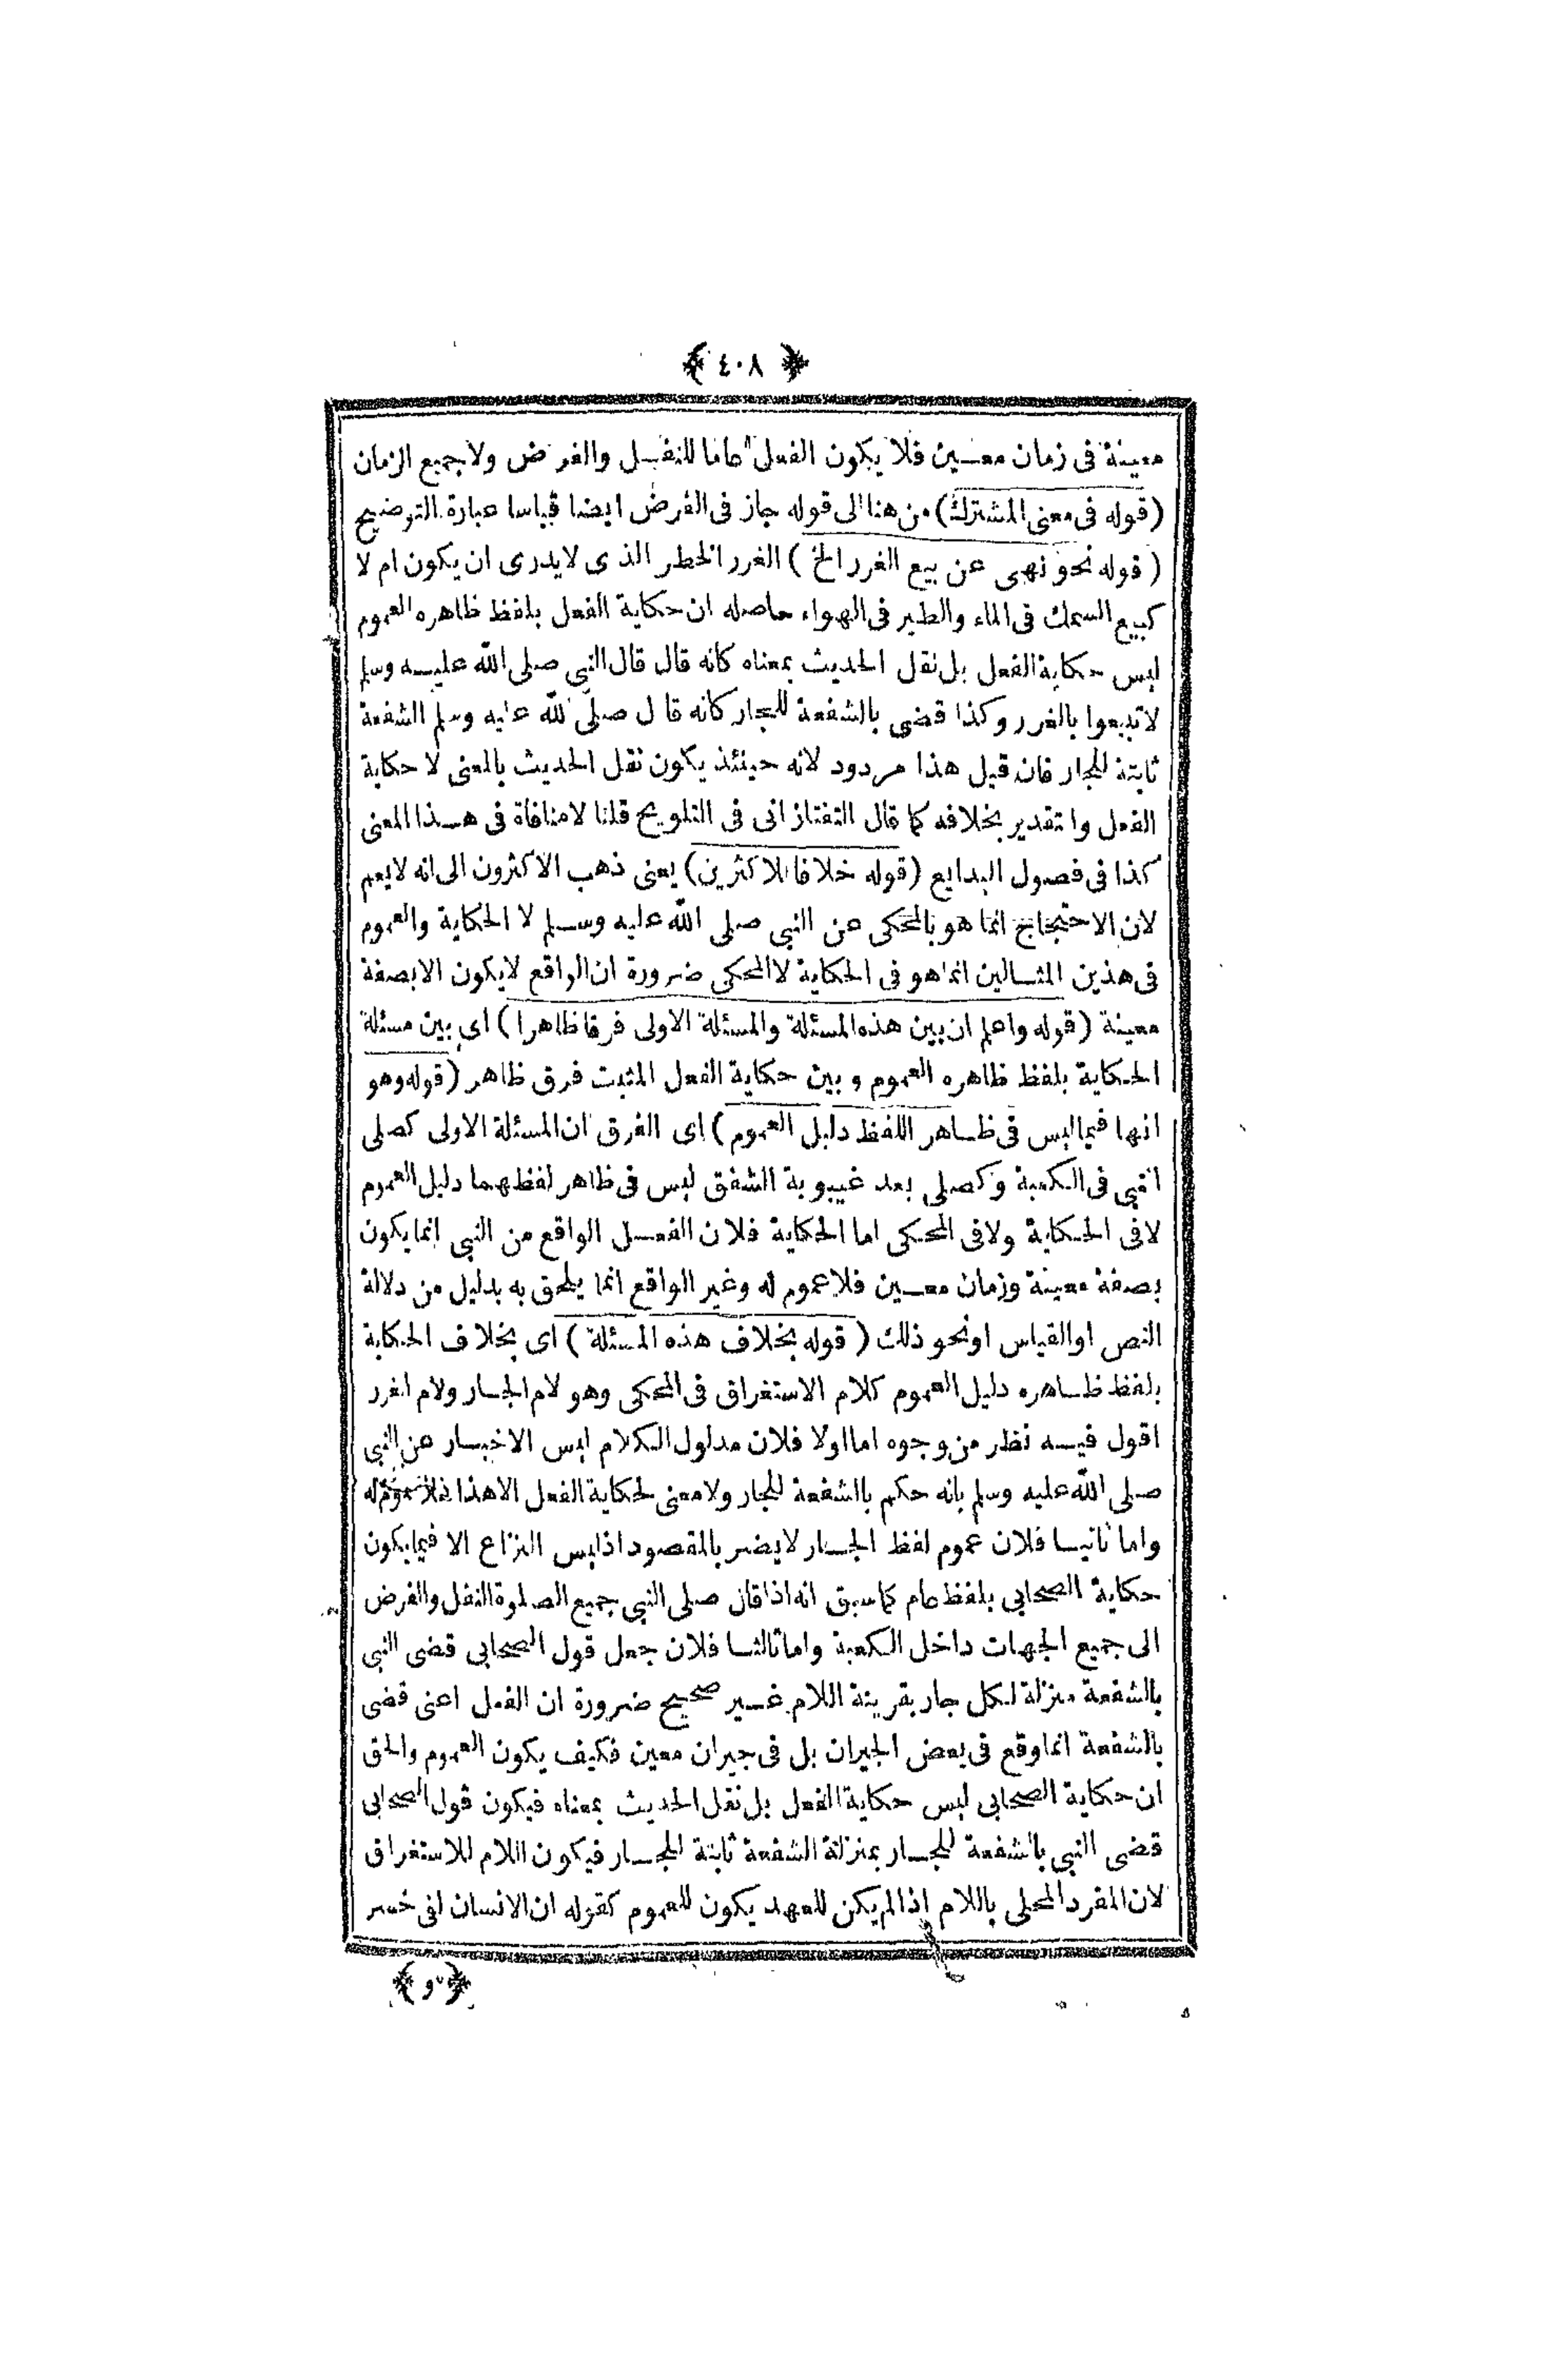 ﴿ ٤٠٨ ﴾
معينة فى زمان معــين فلا يكون الفعل عاما للنفــل والفرض ولا جميع الزمان
(قوله فى معنى المشترك) من هنا الى قوله جاز فى الفرض ايضا قياسا عبارة التوضيح
(قوله نحو نهى عن بيع الغرر الخ) الغرر الخطر الذى لايدرى ان يكون ام لا
كبيع السمك فى الماء والطير فى الهواء حاصله ان حكاية الفعل بلفظ ظاهره العموم
ليس حكاية الفعل بل نقل الحديث بمعناه كانه قال قال النبى صلى الله عليــه وسلم
لاتبيعوا بالغرر وكذا قضى بالشفعة للجار كانه قال صلى الله عليه وسلم الشفعة
ثابتة للجار فان قيل هذا مردود لانه حينئذ يكون نقل الحديث بالمعنى لا حكاية
الفعل والتقدير بخلافه كما قال التفتازانى فى التلويح قلنا لامنافاة فى هــذا المعنى
كذا فى فصول البدايع (قوله خلافا للاكثرين) يعنى ذهب الاكثرون الى انه لايعم
لان الاحتجاج انما هو بالمحكى عن النبى صلى الله عليه وســلم لا الحكاية والعموم
فى هذين المثــالين انما هو فى الحكاية لا المحكى ضرورة ان الواقع لايكون الا بصفة
معينة (قوله واعلم ان بين هذه المسئلة والمسئلة الاولى فرقا ظاهرا) اى بين مسئلة
الحكاية بلفظ ظاهره العموم وبين حكاية الفعل المثبت فرق ظاهر (قوله وهو
انها فيما ليس فى ظــاهر اللفظ دليل العموم) اى الفرق ان المسئلة الاولى كصلى
النبى فى الكعبة وكصلى بعد غيبوبة الشفق ليس فى ظاهر لفظهما دليل العموم
لا فى الحكاية ولا فى المحكى اما الحكاية فلان الفعــل الواقع من النبى انما يكون
بصفة معينة وزمان معــين فلا عموم له وغير الواقع انما يلحق به بدليل من دلالة
النص او القياس او نحو ذلك (قوله بخلاف هذه المسئلة) اى بخلاف الحكاية
بلفظ ظــاهره دليل العموم كلام الاستغراق فى المحكى وهو لام الجــار ولام الغرر
اقول فيــه نظر من وجوه اما اولا فلان مدلول الكلام ليس الا خبــار عن النبى
صلى الله عليه وسلم بانه حكم بالشفعة للجار ولا معنى لحكاية الفعل الا هذا فلا عموم له
واما ثانيــا فلان عموم لفظ الجــار لايضر بالمقصود اذ ليس النزاع الا فيما يكون
حكاية الصحابى بلفظ عام كما سبق انه اذا قال صلى النبى جميع الصلوة النفل والفرض
الى جميع الجهات داخل الكعبة واما ثالثــا فلان جعل قول الصحابى قضى النبى
بالشفعة منزلة لكل جار بقرينة اللام غــير صحيح ضرورة ان الفعل اعنى قضى
بالشفعة انما وقع فى بعض الجيران بل فى جيران معين فكيف يكون العموم والحق
ان حكاية الصحابى ليس حكاية الفعل بل نقل الحديث بمعناه فيكون قول الصحابى
قضى النبى بالشفعة للجــار بمنزلة الشفعة ثابتة للجــار فيكون اللام للاستغراق
لان المفرد المحلى باللام اذا لم يكن للعهد يكون للعموم كقوله ان الانسان لفى خسر
﴿ و ﴾